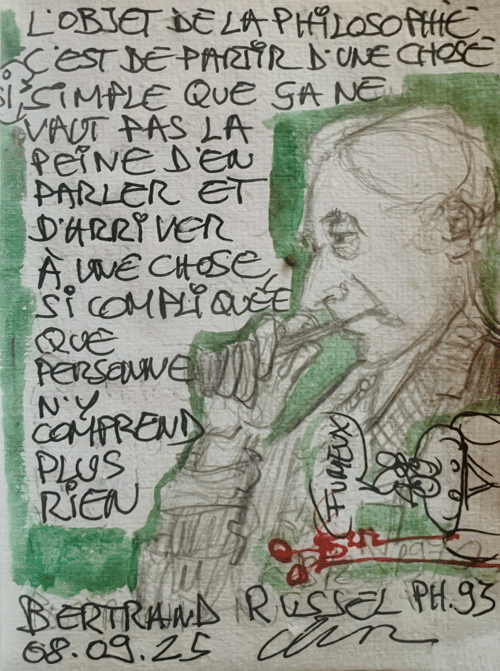 L'OBJET DE LA PHILOSOPHIE
C'EST DE PARTIR D'UNE CHOSE
SI SIMPLE QUE ÇA NE
VAUT PAS LA
PEINE D'EN
PARLER ET
D'ARRIVER
À UNE CHOSE
SI COMPLIQUÉE
QUE
PERSONNE
N'Y
COMPREND
PLUS
RIEN
FUMEUX
BERTRAND RUSSEL PH.93
08.09.25